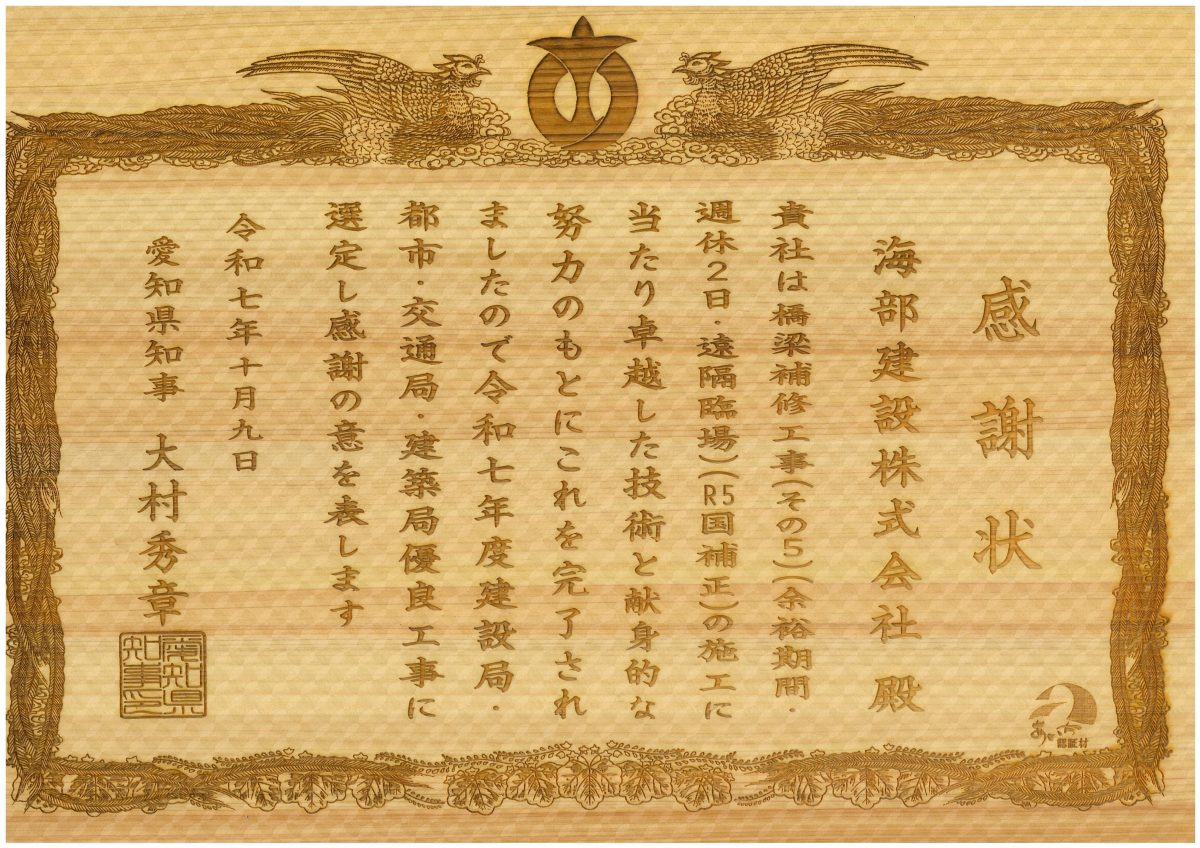 感謝状
海部建設株式会社 殿
貴社は橋梁補修工事(その5)(余裕期間・
週休2日・遠隔臨場)(R5国補正)の施工に
当たり卓越した技術と献身的な
努力のもとにこれを完了され
ましたので令和七年度建設局・
都市・交通局・建築局優良工事に
選定し感謝の意を表します
令和七年十月九日
愛知県知事 大村秀章
愛知県
知事之印
認証材